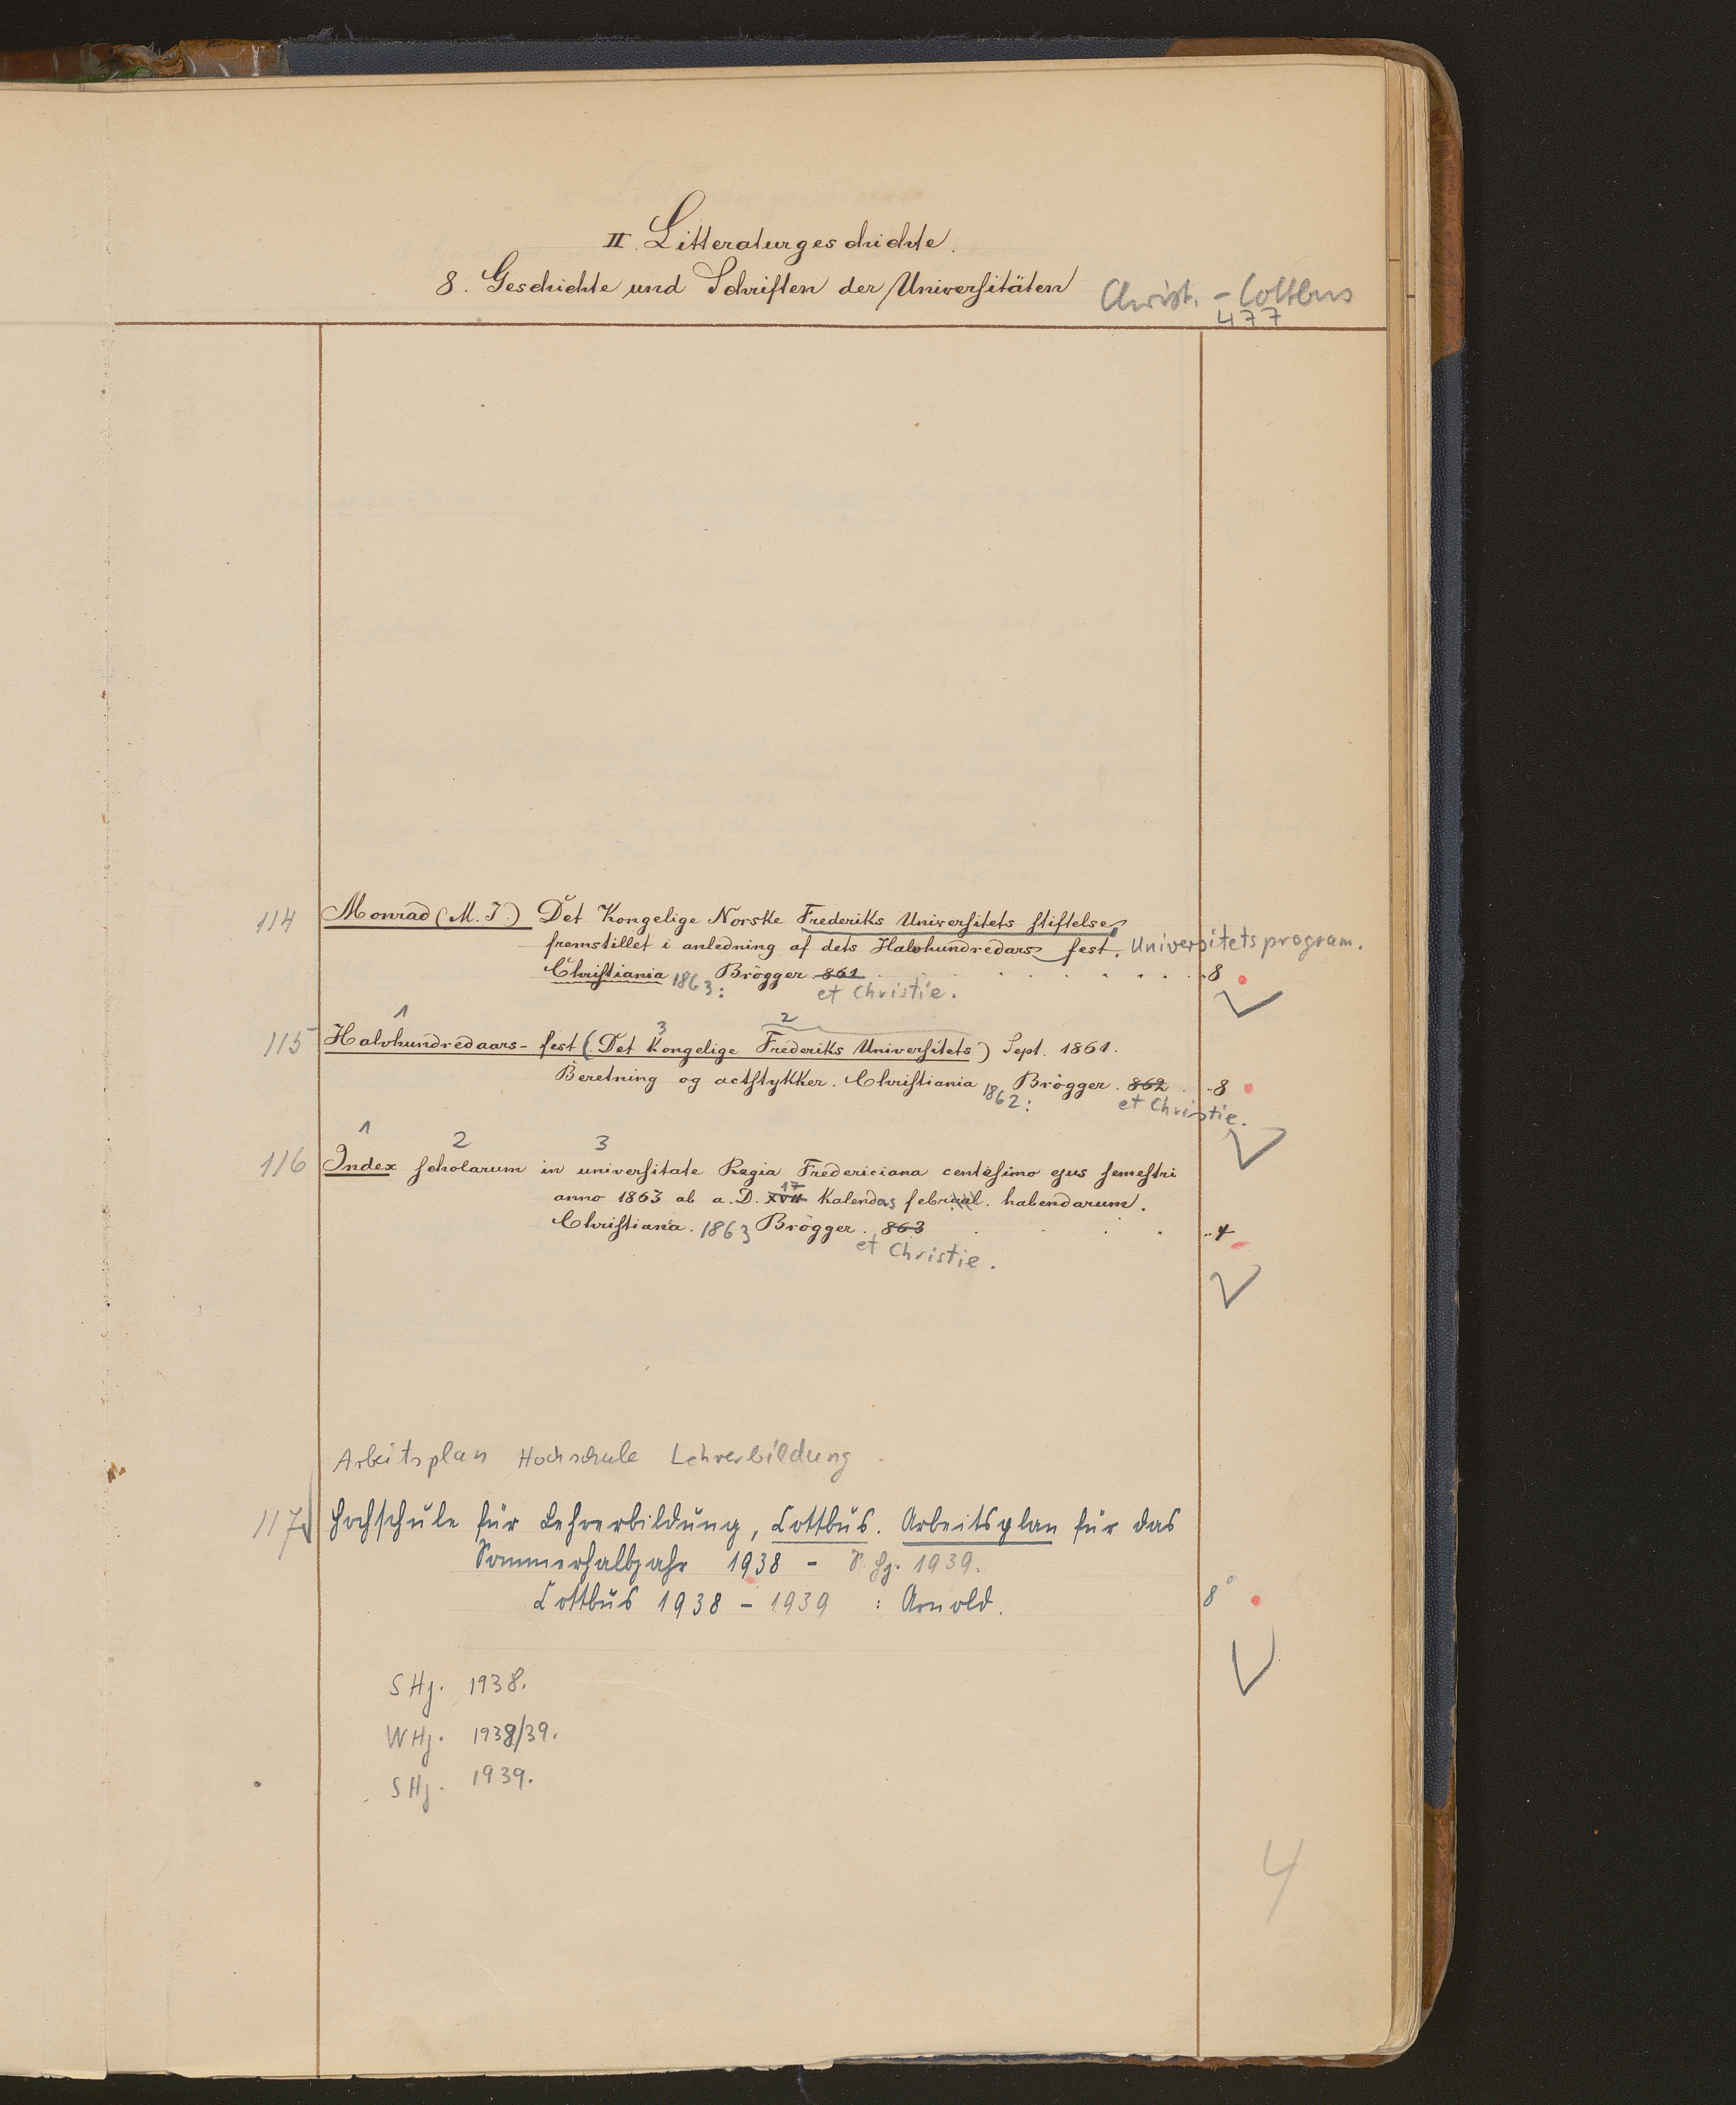 II. Litteraturgeschichte.
8. Geschichte und Schriften der Universitäten
Christ. - Cottbus
477
114 Monrad (M. J.) Det Kongelige Norske Frederiks Universitets Stiftelse,
fremstillet i anledning af dets Halvhundredars fest. Universitetsprogram.
Christiania 1863: Brögger 861 . . . . . . 8
et Christie.
1 3 2
115 Halvhundredaars-fest (Det Kongelige Frederiks Universitets) Sept. 1861.
Beretning og actstykker. Christiania 1862: Brögger. 862 . . 8
et Christie.
1 2 3
116 Index scholarum in universitate Regia Fredericiana centesimo ejus semestri
anno 1863 ab a. D. XVII 17 Kalendas februal. habendarum.
Christiana. 1863 Brögger. 863 . . . . 4
et Christie.
Arbeitsplan Hochschule Lehrerbildung
117 Hochschule für Lehrerbildung, Cottbus. Arbeitsplan für das
Sommerhalbjahr 1938 - S. Hj. 1939.
Cottbus 1938 - 1939 : Arnold. 8°
SHj. 1938.
WHj. 1938/39.
SHj. 1939.
4